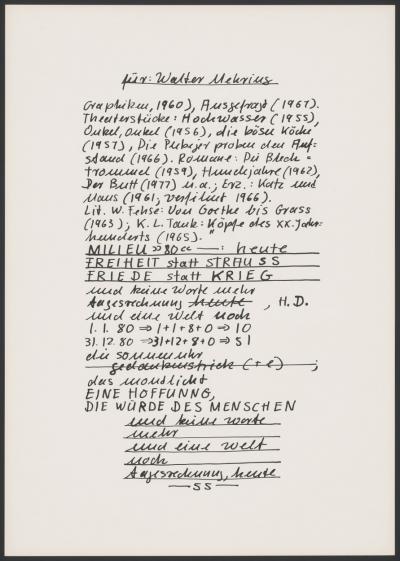 für: Walter Mehring
Graphiken, 1960), Ausgefragt (1967).
Theaterstücke: Hochwasser (1955),
Onkel, onkel (1956), die bösen Köche
(1957), Die Plebejer proben den Auf-
stand (1966). Romane: Die Blech=
trommel (1959), Hundejahre (1962),
Der Butt (1977) u.a.; Erz.: Katz und
Maus (1961; verfilmt 1966).
Lit. W. Fehse: Von Goethe bis Grass
(1963); K.L. Tank: Köpfe des XX. Jahr-
hunderts (1965)."
MILIEU »80« —: heute
FREIHEIT statt STRAUSS
FRIEDE statt KRIEG
und keine Worte mehr
tagesrechnung heute , H.D.
und eine Welt noch
1.1.80 ⇒ 1+1+8+0 ⇒ 10
31.12.80 ⇒31+12+8+0 ⇒ 51
die sonnenuhr
gedankenstrich (+e) ;
das mondlicht
EINE HOFFUNNG,
DIE WÜRDE DES MENSCHEN
und keine worte
mehr
und eine welt
noch
tagesrechnung, heute
—55—